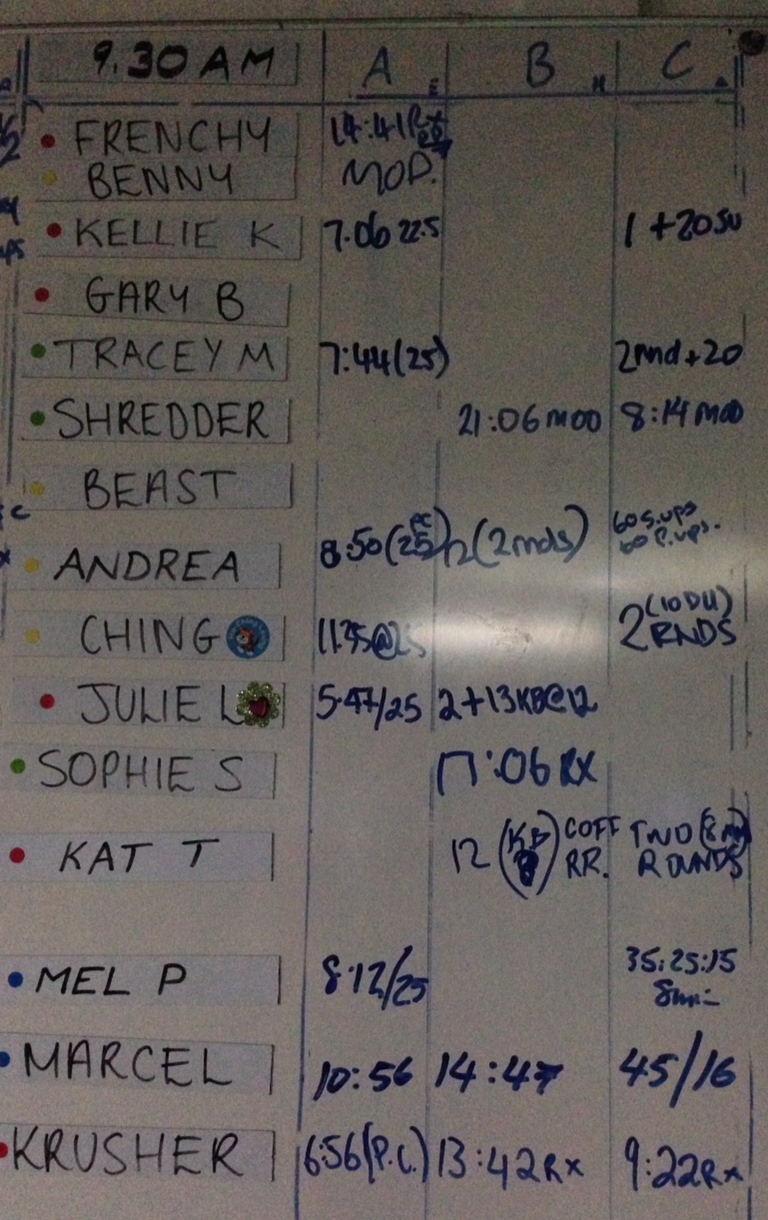 9.30 AM A E B M C A
FRENCHY 14:41 Rx
BENNY MOD.
KELLIE K 7.06 22.5 1 + 20 SU
GARY B
TRACEY M 7:44 (25) 2rnd + 20
SHREDDER 21:06 MOD 8:14 MOD
BEAST
ANDREA 8:50 (25 PC) (2 rnds) 60 S.ups
60 P.ups.
CHING @25 2 (10 DU)
RNDS
JULIE L 5.47/25 2+13KB@12
SOPHIE S 17:06 RX
KAT T 12 (KB) COFF TWO (8 min)
RR. ROUNDS
MEL P 8.12/25 35:25:15
8min
MARCEL 10:56 14:47 45/16
KRUSHER 6:56 (P.C.) 13:42 Rx 9:22 Rx